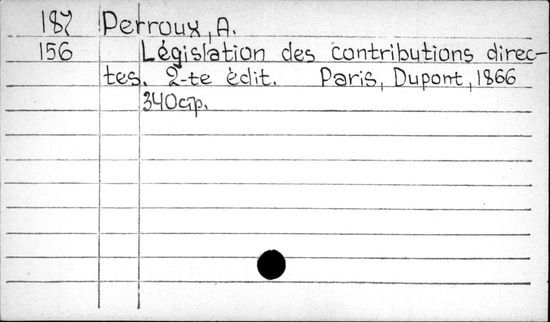 187 Perroux, A.
156 Législation des contributions direc-
tes. 2-te édit. Paris, Dupont, 1866
340стр.